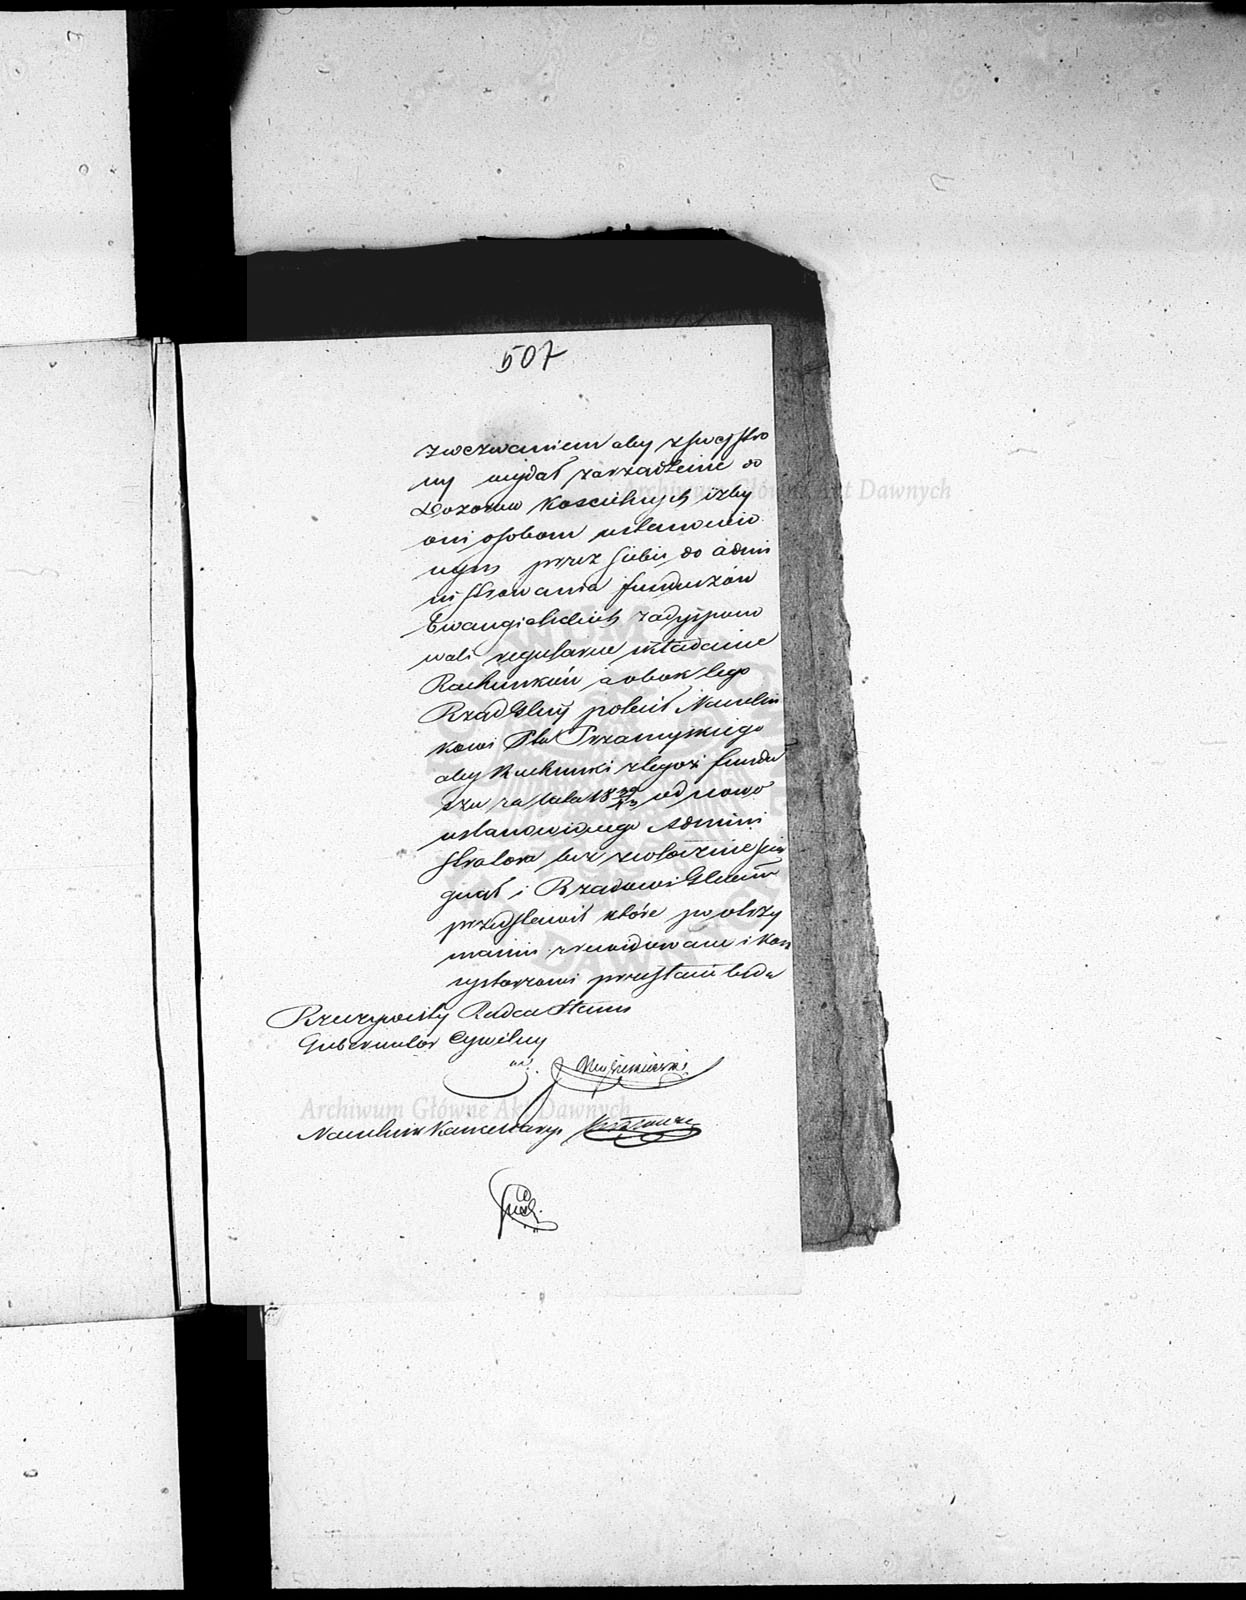 507
z wezwaniem aby z swej stro
ny wydał zarządzenie do
Dozorów Kościelnych iżby
oni osobom ustanowio
nym przez siebie do admi
nistrowania funduszów
Ewangielickich zadyspono
wali regularne składanie
Rachunków a obok tego
Rząd Glny polecił Naczelni
kowi Ptu
aby Rachunki z tegoż fundu
szu za lata od nowo
ustanowionego Admini
stratora bez zwłocznie ścią
gnął i Rządowi Glnemu
przedstawił które po otrzy
maniu zrewidowane i Kon
systorzowi przesłane będą
Rzeczywisty Radca Stanu
Gubernator Cywilny
Naczelnik Kancellaryi
Archiwum Główne Akt Dawnych
Archiwum Główne Akt Dawnych